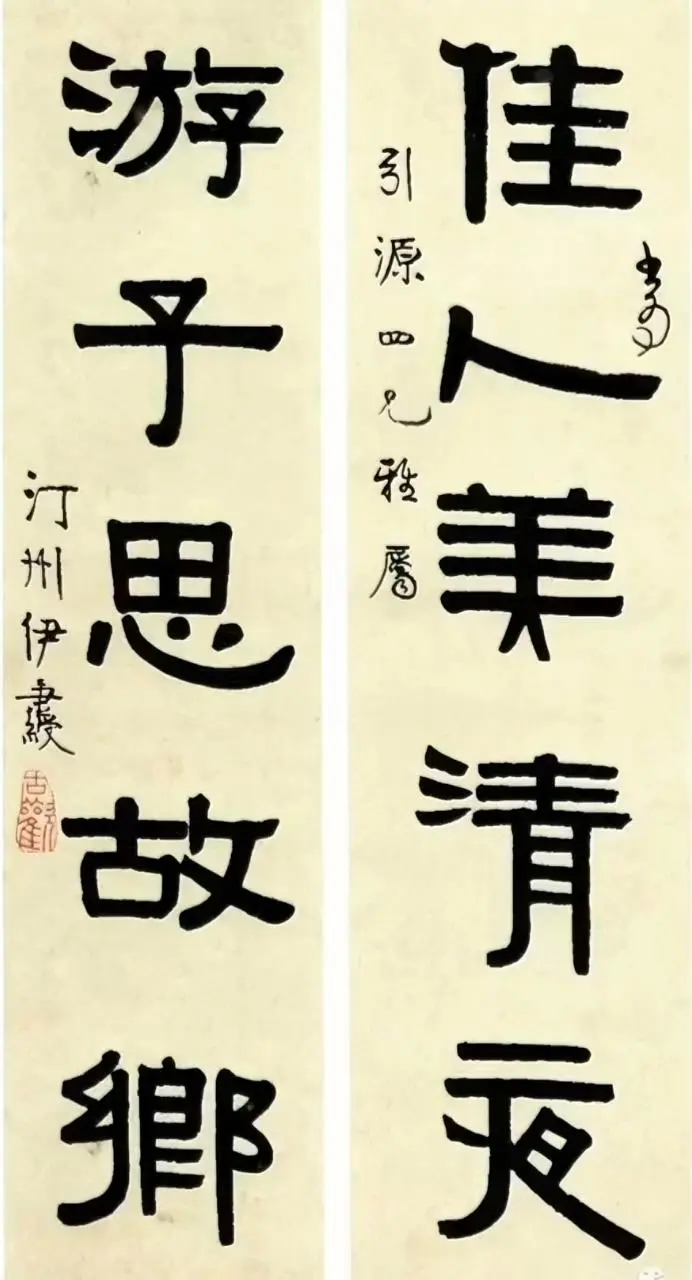 佳人美清夜
引源四兄雅屬
游子思故鄉
汀州伊秉綬